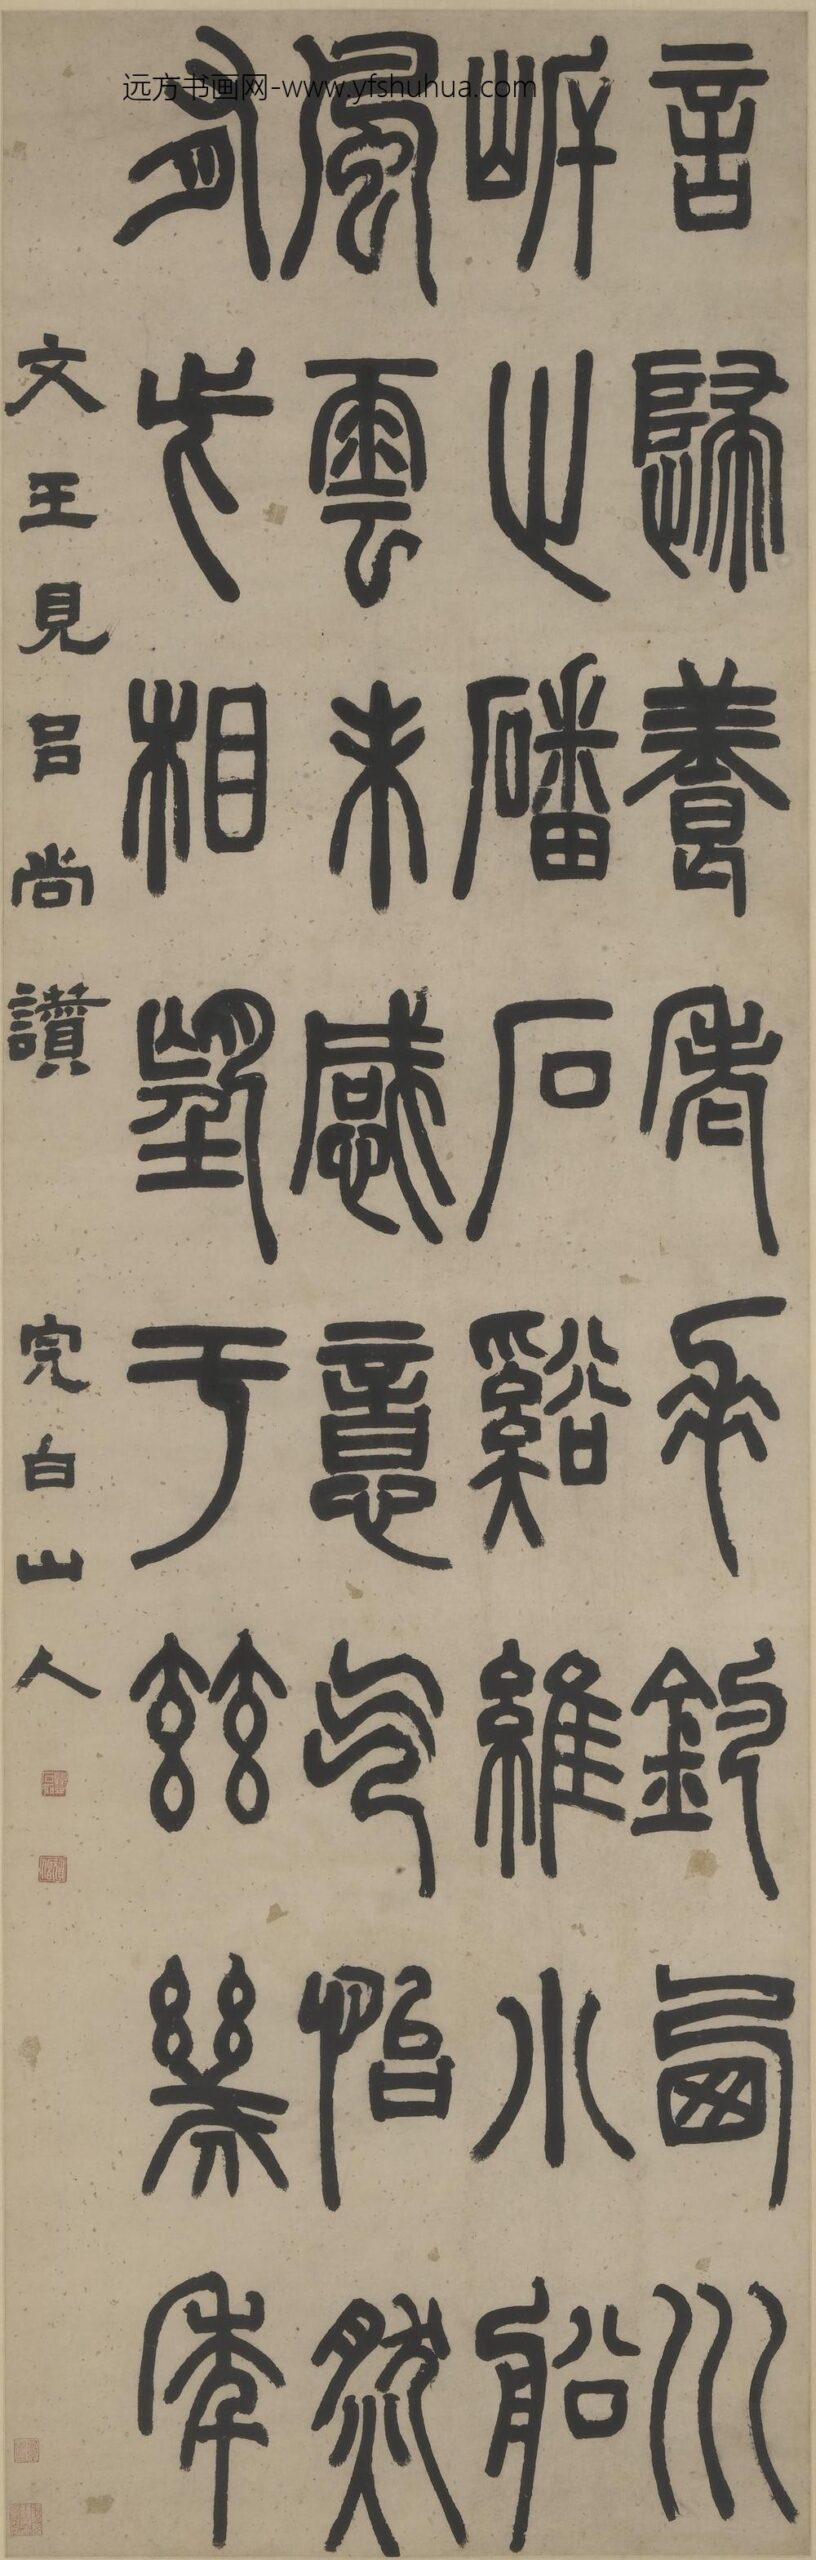 远方书画网-www.yfshuhua.com
言歸養老垂釣西川
岸止磻石谿維小船
風雲未感意气怡然
有此相望于茲幾年
文王見呂尚讚 完白山人